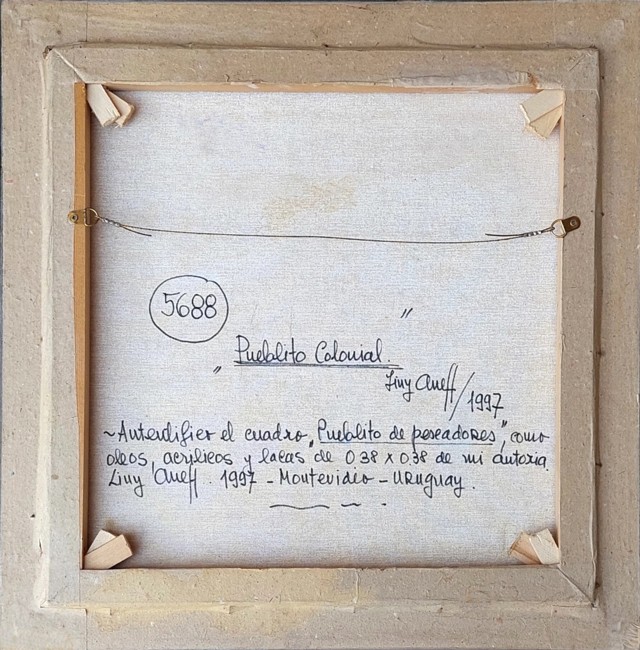 5688
„Pueblito Colonial."
Liny Aneff/1997
~Autentifico el cuadro „Pueblito de pescadores", como
oleos, acrilicos y lacas de 0.38 x 0.38 de mi autoria.
Liny Aneff. 1997 - Montevideo - URuguay.